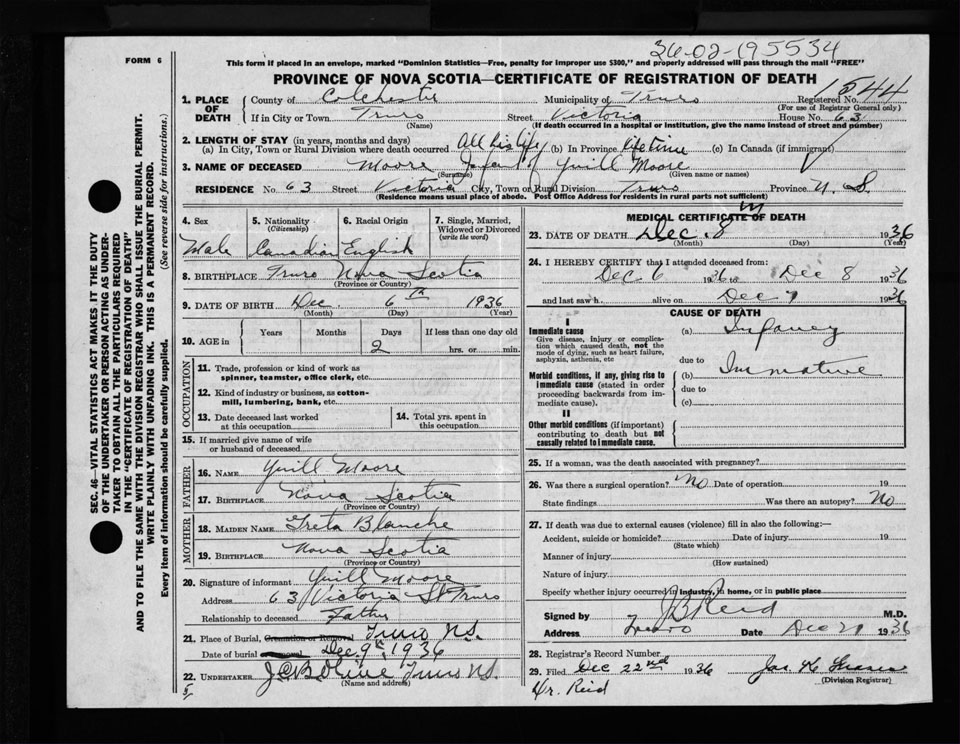 36-02-195534
FORM 6
This form if placed in an envelope, marked "Dominion Statistics—Free, penalty for improper use $300," and properly addressed will pass through the mail "FREE"
PROVINCE OF NOVA SCOTIA—CERTIFICATE OF REGISTRATION OF DEATH
1544
1. PLACE OF DEATH
County of Colchester Municipality of Truro Registered No.
(For use of Registrar General only)
If in City or Town Truro Street Victoria House No. 63
(Name) (If death occurred in a hospital or institution, give the name instead of street and number)
2. LENGTH OF STAY (in years, months and days)
(a) In City, Town or Rural Division where death occurred All his life (b) In Province lifetime (c) In Canada (if immigrant)
3. NAME OF DECEASED Moore Infant of Yuill Moore
(Surname) (Given name or names)
RESIDENCE No. 63 Street Victoria City, Town or Rural Division Truro Province N. S.
(Residence means usual place of abode. Post Office Address for residents in rural parts not sufficient)
SEC. 46—VITAL STATISTICS ACT MAKES IT THE DUTY
OF THE UNDERTAKER OR PERSON ACTING AS UNDER-
TAKER TO OBTAIN ALL THE PARTICULARS REQUIRED
IN THE "CERTIFICATE OF REGISTRATION OF DEATH"
AND TO FILE THE SAME WITH THE DIVISION REGISTRAR WHO SHALL ISSUE THE BURIAL PERMIT.
WRITE PLAINLY WITH UNFADING INK. THIS IS A PERMANENT RECORD.
Every item of information should be carefully supplied. (See reverse side for instructions.)
4. Sex 5. Nationality (Citizenship) 6. Racial Origin 7. Single, Married, Widowed or Divorced (write the word)
Male Canadian English
8. BIRTHPLACE Truro Nova Scotia
(Province or Country)
9. DATE OF BIRTH Dec. 6th 1936
(Month) (Day) (Year)
10. AGE in Years Months Days If less than one day old
2 hrs. or min.
OCCUPATION
11. Trade, profession or kind of work as
spinner, teamster, office clerk, etc.
12. Kind of industry or business, as cotton-
mill, lumbering, bank, etc.
13. Date deceased last worked
at this occupation
14. Total yrs. spent in
this occupation
15. If married give name of wife
or husband of deceased
FATHER
16. NAME Yuill Moore
17. BIRTHPLACE Nova Scotia
(Province or Country)
MOTHER
18. MAIDEN NAME Greta Blanche
19. BIRTHPLACE Nova Scotia
(Province or Country)
20. Signature of informant Yuill Moore
Address 63 Victoria St Truro
Relationship to deceased Father
21. Place of Burial, Cremation or Removal Truro N.S.
Date of burial Dec. 9th, 1936
22. UNDERTAKER Truro N.S.
(Name and address)
MEDICAL CERTIFICATE OF DEATH
23. DATE OF DEATH Dec. 8 1936
(Month) (Day) (Year)
24. I HEREBY CERTIFY that I attended deceased from:
Dec 6 1936 to Dec 8 1936
and last saw h alive on Dec 7 1936
CAUSE OF DEATH
I
Immediate cause
Give disease, injury or complica-
tion which caused death, not the
mode of dying, such as heart failure,
asphyxia, asthenia, etc
(a) Infancy
due to
Morbid conditions, if any, giving rise to
immediate cause (stated in order
proceeding backwards from im-
mediate cause).
(b) Immature
due to
(c)
II
Other morbid conditions (if important)
contributing to death but not
causally related to immediate cause.
25. If a woman, was the death associated with pregnancy?
26. Was there a surgical operation? No Date of operation 19
State findings Was there an autopsy? No
27. If death was due to external causes (violence) fill in also the following:—
Accident, suicide or homicide? Date of injury 19
(State which)
Manner of injury
(How sustained)
Nature of injury
Specify whether injury occurred in industry, in home, or in public place
Signed by J B Reid M.D.
Address Truro Date Dec 21 1936
28. Registrar's Record Number
29. Filed Dec 22nd 1936
(Division Registrar)
Dr. Reid